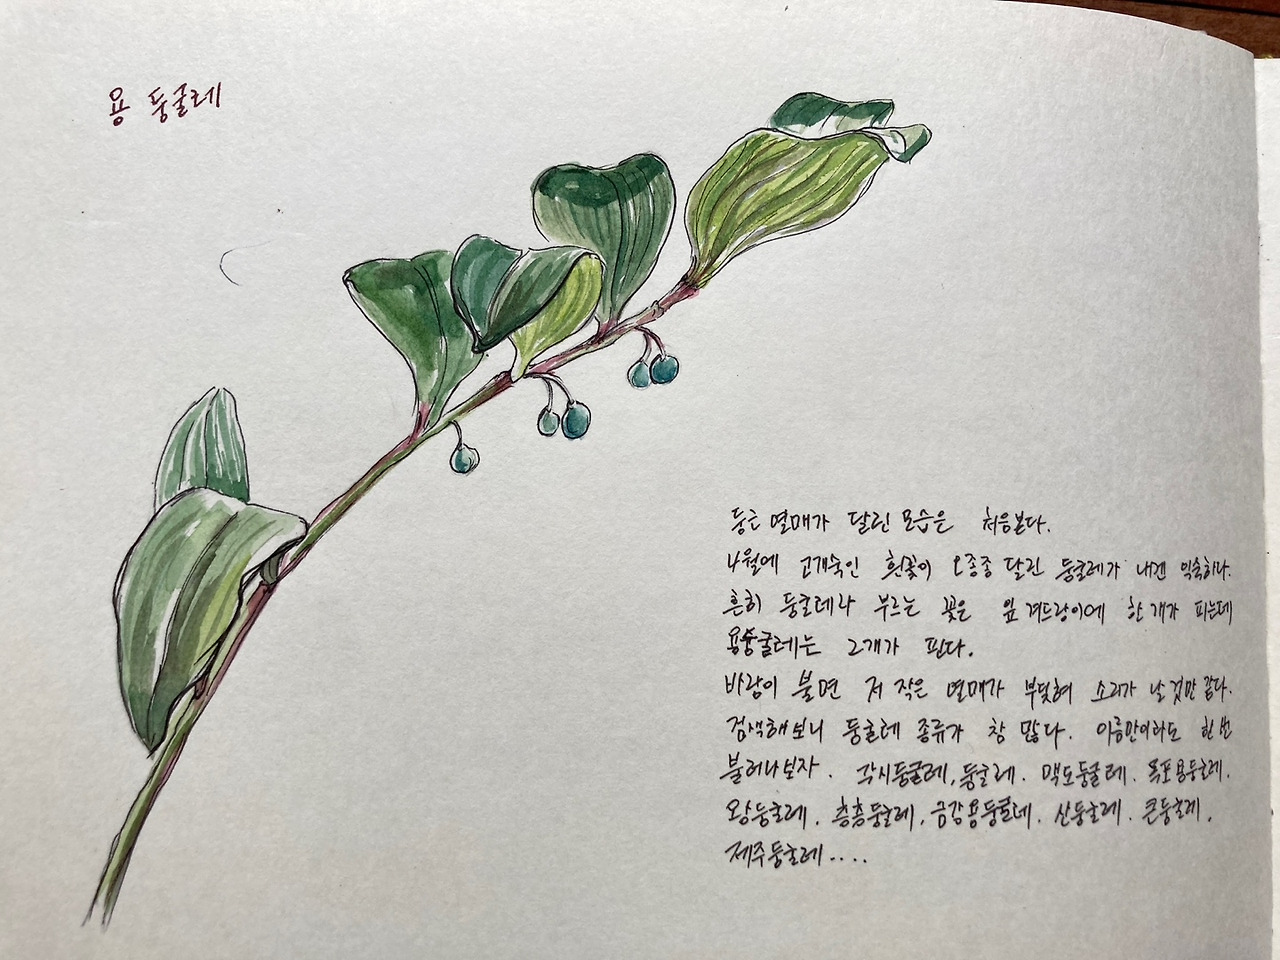 용 둥굴레
둥근 열매가 달린 모습은 처음본다.
4월에 고개숙인 흰꽃이 오종종 달린 둥굴레가 내겐 익숙하다.
흔히 둥굴레라 부르는 꽃은 잎겨드랑이에 한개가 피는데
용둥굴레는 2개가 핀다.
바람이 불면 저 작은 열매가 부딪혀 소리가 날것만 같다.
검색해보니 둥굴레 종류가 참 많다. 이름만이라도 한번
불러나보자. 각시둥굴레, 둥굴레. 맥도둥굴레. 목포용둥굴레.
왕둥굴레. 층층둥굴레. 금강용둥굴레. 산둥굴레. 큰둥굴레.
제주둥굴레....